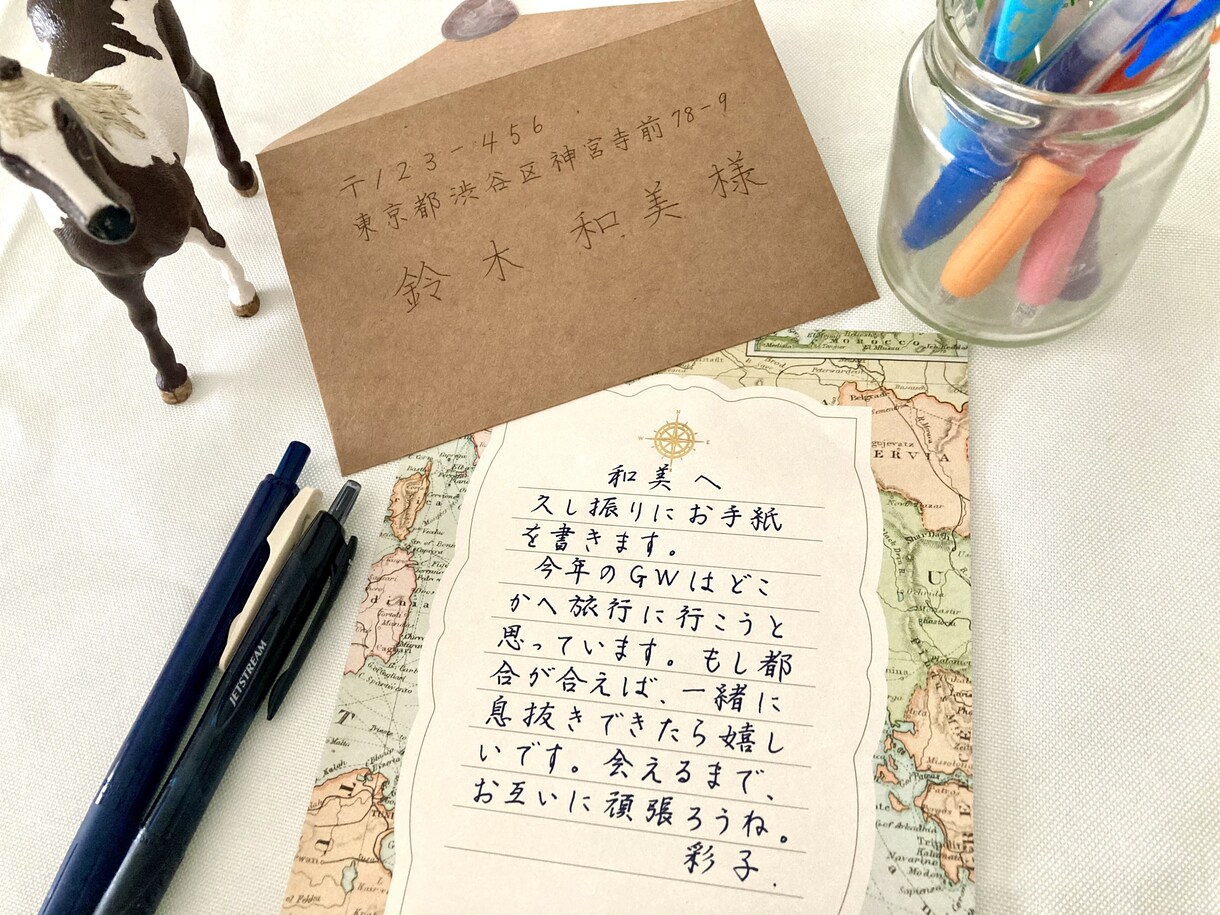 〒123-456
東京都渋谷区神宮寺前78-9
鈴木 和美 様
MOROCCO
Belgrade
ERVIA
JETSTREAM
和美へ
久し振りにお手紙
を書きます。
今年のGWはどこ
かへ旅行に行こうと
思っています。もし都
合が合えば、一緒に
息抜きできたら嬉し
いです。会えるまで、
お互いに頑張ろうね。
彩子.